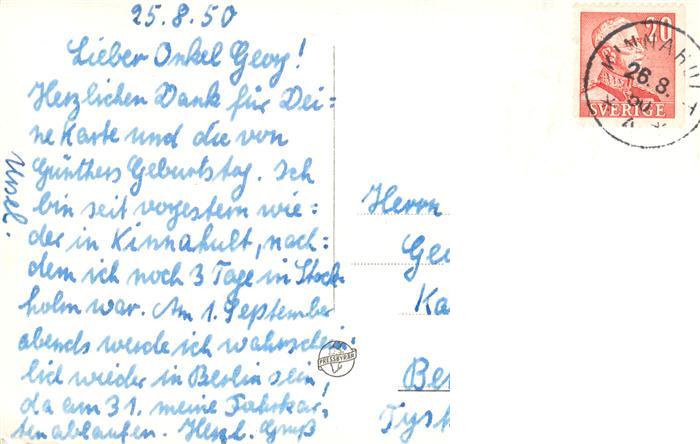 25.8.50
Lieber Onkel Georg!
Herzlichen Dank für Dei=
ne Karte und die von
Günthers Geburtstag. Ich
bin seit vorgestern wie=
der in Kinnahult, nach=
dem ich noch 3 Tage in Stock=
holm war. Am 1. September
abends werde ich wahrschein=
lich wieder in Berlin sein,
da am 31. meine Fahrkar=
ten ablaufen. Herzl. Gruß
Ursel.
20
SVERIGE
KINNAHULT
26.8.
50
PRESSBYRÅN
Herrn
Geo
Ka
Be
Tysk